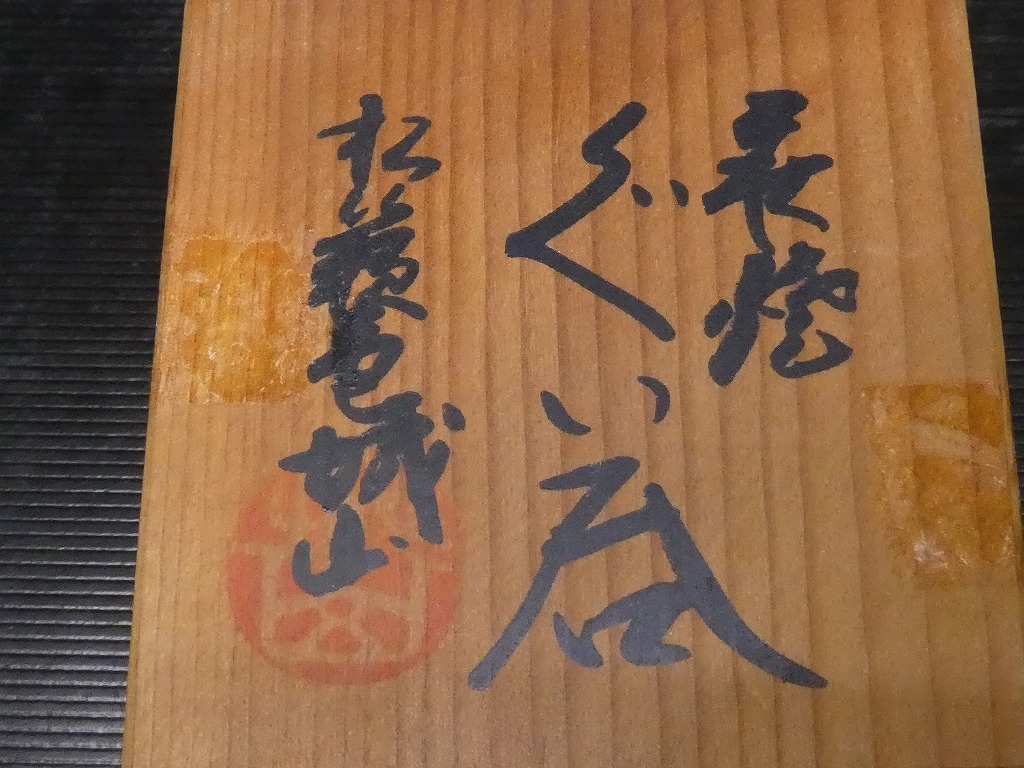 萩焼
ぐい呑
松籟窯城山